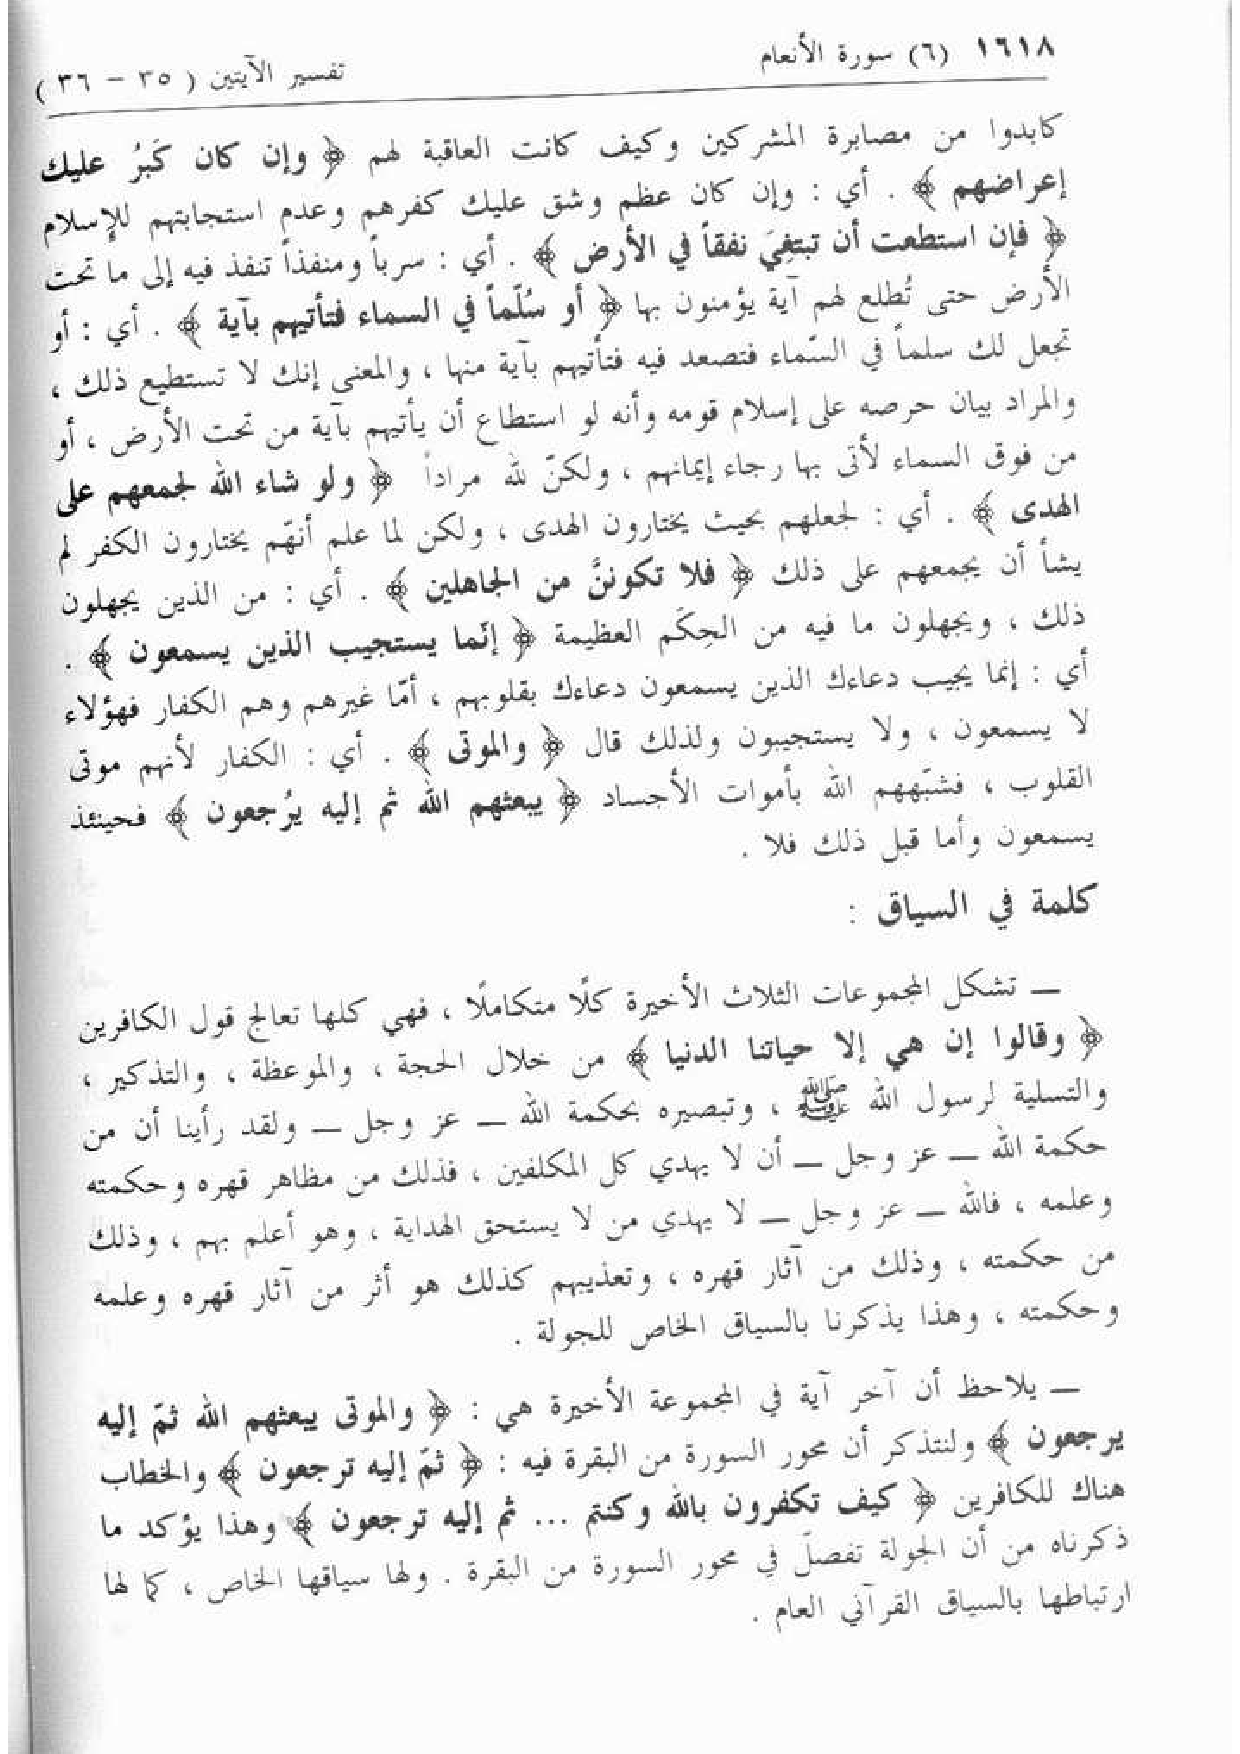 ١٦١٨ (٦) سورة الأنعام تفسير الآيتين ( ٣٥ – ٣٦ )
كابدوا من مصابرة المشركين وكيف كانت العاقبة لهم ﴿ وإن كان كَبرُ عليك
إعراضهم ﴾ . أي : وإن كان عظم وشق عليك كفرهم وعدم استجابتهم للإسلام
﴿ فإن استطعت أن تبتغيَ نفقاً في الأرض ﴾ . أي : سرباً ومنفذاً تنفذ فيه إلى ما تحت
الأرض حتى تُطلع لهم آية يؤمنون بها ﴿ أو سُلّماً في السماء فتأتيهم بآية ﴾ . أي : أو
تجعل لك سلماً في السّماء فتصعد فيه فتأتيهم بآية منها ، والمعنى إنك لا تستطيع ذلك ،
والمراد بيان حرصه على إسلام قومه وأنه لو استطاع أن يأتيهم بآية من تحت الأرض ، أو
من فوق السماء لأتى بها رجاء إيمانهم ، ولكنّ لله مراداً ﴿ ولو شاء الله لجمعهم على
الهدى ﴾ . أي : لجعلهم بحيث يختارون الهدى ، ولكن لما علم أنهّم يختارون الكفر لم
يشأ أن يجمعهم على ذلك ﴿ فلا تكوننَّ من الجاهلين ﴾ . أي : من الذين يجهلون
ذلك ، ويجهلون ما فيه من الحِكَم العظيمة ﴿ إنّما يستجيب الذين يسمعون ﴾ .
أي : إنما يجيب دعاءك الذين يسمعون دعاءك بقلوبهم ، أمّا غيرهم وهم الكفار فهؤلاء
لا يسمعون ، ولا يستجيبون ولذلك قال ﴿ والموتى ﴾ . أي : الكفار لأنهم موتى
القلوب ، فشبّههم الله بأموات الأجساد ﴿ يبعثهم الله ثم إليه يرُجعون ﴾ فحينئذ
يسمعون وأما قبل ذلك فلا .
كلمة في السياق :
ــ تشكل المجموعات الثلاث الأخيرة كلًا متكاملًا ، فهي كلها تعالج قول الكافرين
﴿ وقالوا إن هي إلا حياتنا الدنيا ﴾ من خلال الحجة ، والموعظة ، والتذكير ،
والتسلية لرسول الله ﷺ ، وتبصيره بحكمة الله ــ عز وجل ــ ولقد رأينا أن من
حكمة الله ــ عز وجل ــ أن لا يهدي كل المكلفين ، فذلك من مظاهر قهره وحكمته
وعلمه ، فالله ــ عز وجل ــ لا يهدي من لا يستحق الهداية ، وهو أعلم بهم ، وذلك
من حكمته ، وذلك من آثار قهره ، وتعذيبهم كذلك هو أثر من آثار قهره وعلمه
وحكمته ، وهذا يذكرنا بالسياق الخاص للجولة .
ــ يلاحظ أن آخر آية في المجموعة الأخيرة هي : ﴿ والموتى يبعثهم الله ثمّ إليه
يرجعون ﴾ ولنتذكر أن محور السورة من البقرة فيه : ﴿ ثمّ إليه ترجعون ﴾ والخطاب
هناك للكافرين ﴿ كيف تكفرون بالله وكنتم ... ثم إليه ترجعون ﴾ وهذا يؤكد ما
ذكرناه من أن الجولة تفصلّ في محور السورة من البقرة . ولها سياقها الخاص ، كما لها
ارتباطها بالسياق القرآني العام .